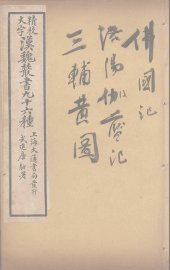 佛國記
洛陽伽藍記
三輔黃圖
精校
大字
漢魏叢書九十六種
上海大通書局發行
武進唐駝署